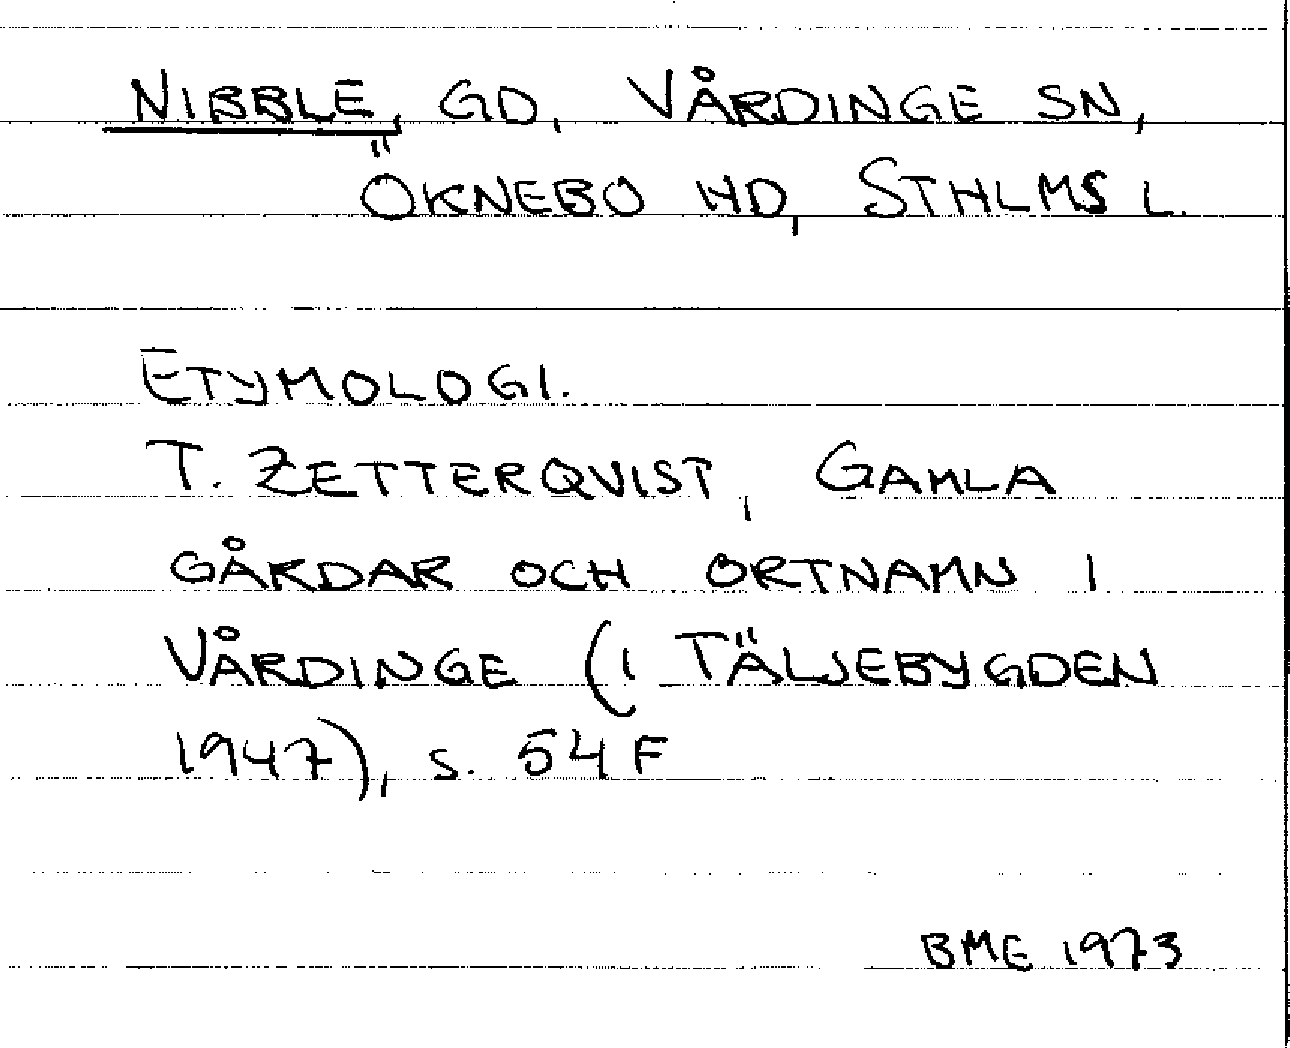 NIBBLE, GD, VÅRDINGE SN,
ÖKNEBO HD, STHLMS L.
ETYMOLOGI.
T. ZETTERQVIST, GAMLA
GÅRDAR OCH ORTNAMN I
VÅRDINGE (I TÄLJEBYGDEN
1947), S. 54 F
BME 1973